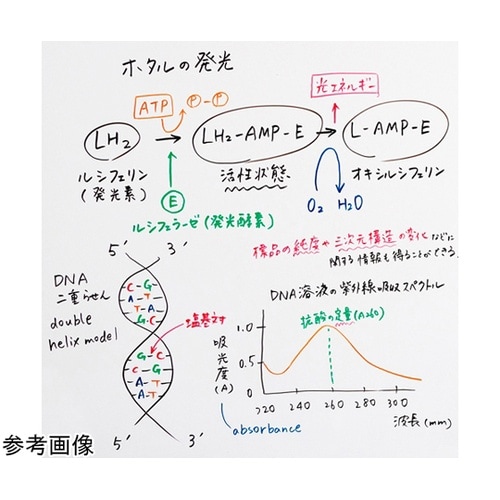 ホタルの発光
ATP
P-P
光エネルギー
LH₂
LH₂-AMP-E
L-AMP-E
ルシフェリン
(発光素)
活性状態
オキシルシフェリン
E
O₂ H₂O
ルシフェラーゼ(発光酵素)
標品の純度や三次元構造の変化などに
関する情報も得ることができる.
5' 3'
DNA
二重らせん
double
helix model
C-G
A-T
A-T
G-C
塩基対
G-C
C-G
A-T
A-T
5' 3'
DNA溶液の紫外線吸収スペクトル
核酸の定量(A260)
吸光度(A)
1.0
0.5
220 240 260 280 300
波長(mm)
absorbance
参考画像